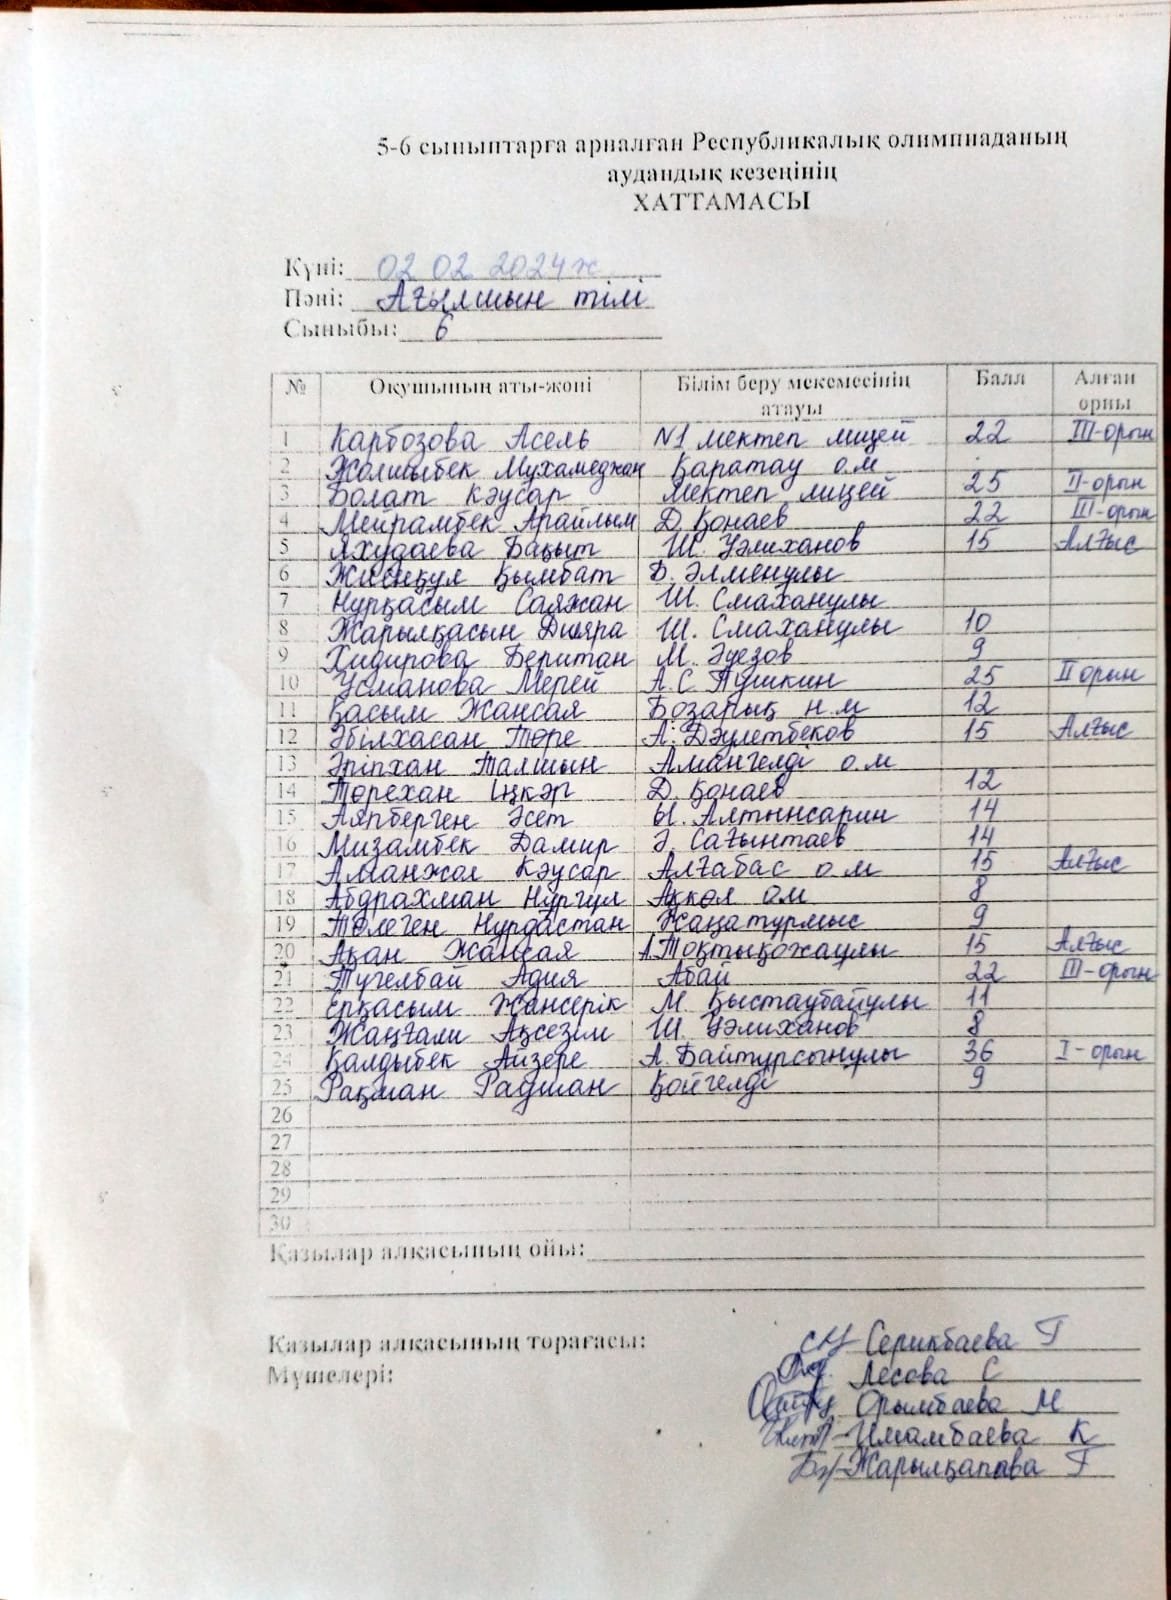 5-6 сыныптарға арналған Республикалық олимпиаданың
аудандық кезеңінің
ХАТТАМАСЫ
Күні: 02 02 2024ж
Пәні: Ағылшын тілі
Сыныбы: 6
№ Оқушының аты-жөні Білім беру мекемесінің атауы Балл Алған орны
1 Карбозова Асель N1 мектеп лицей 22 III-орын
2 Жолшыбек Мухамеджан Қаратау о.м
3 Болат Кәусар Мектеп лицей 25 II-орын
4 Мейрамбек Арайлым Д. Қонаев 22 III-орын
5 Яхудаева Бақыт Ш. Уәлиханов 15 Алғыс
6 Жиенқұл Қымбат Б. Әлменұлы
7 Нұрқасым Саяжан Ш. Смаханұлы
8 Жарылқасын Дияра Ш. Смаханұлы 10
9 Хидирова Беритан М. Әуезов 9
10 Усманова Мерей А.С Пушкин 25 II орын
11 Қасым Жансая Бозарық н.м 12
12 Әбілхасан Төре А. Дәулетбеков 15 Алғыс
13 Әріпхан Талшын Амангелді о.м
14 Төрехан Іңкәр Д. Қонаев 12
15 Аяпберген Әсет Ы. Алтынсарин 14
16 Мизамбек Дамир Ә. Сағынтаев 14
17 Аманжол Кәусар Алғабас о.м 15 Алғыс
18 Абдрахман Нұргүл Ақкөл ом 8
19 Төлеген Нұрдастан Жаңатұрмыс 9
20 Ақан Жансая А.Тоқтықожаұлы 15 Алғыс
21 Түгелбай Адия Абай 22 III-орын
22 Ерқасым Жансерік М. Қыстаубайұлы 11
23 Жаңғали Ақсезім Ш. Уәлиханов 8
24 Қалдыбек Айзере А. Байтұрсынұлы 36 I-орын
25 Рақман Радман Қойгелді 9
26
27
28
29
30
Қазылар алқасының ойы:
Қазылар алқасының төрағасы: Серикбаева Г
Мүшелері: Лесова С
Орымбаева М
Имамбаева К
Жарылқапова Г